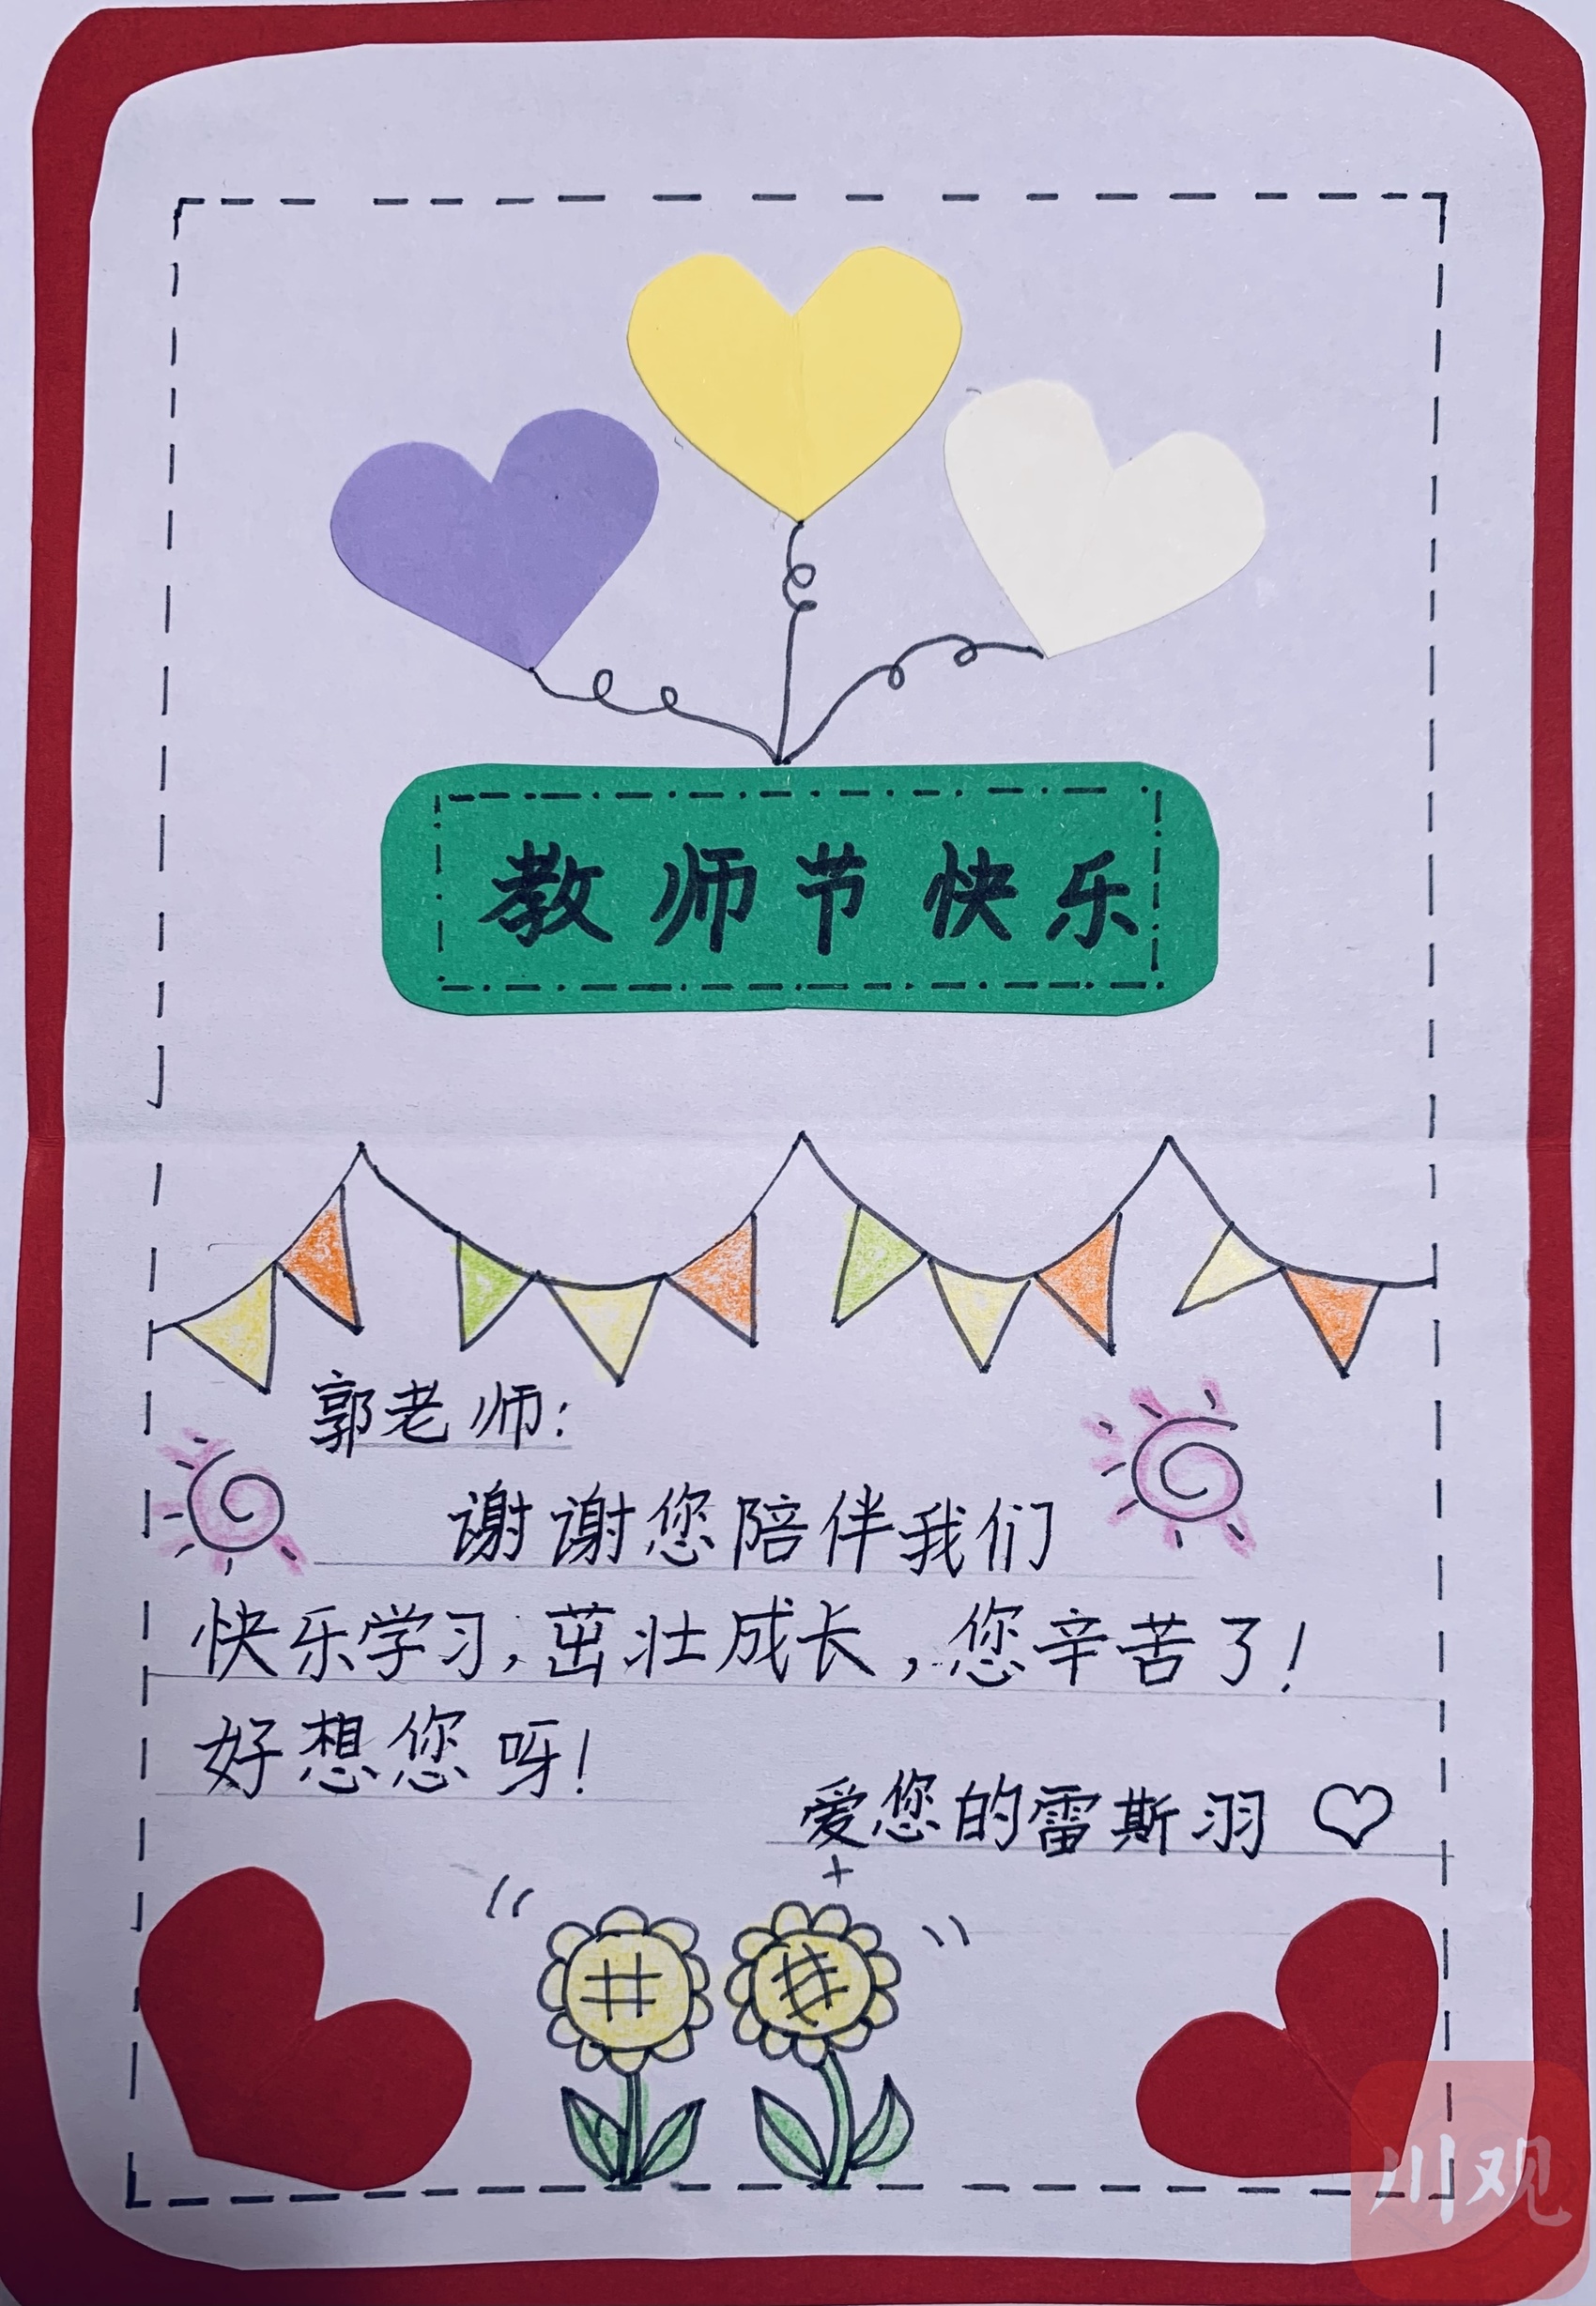 教师节快乐
郭老师:
谢谢您陪伴我们
快乐学习,茁壮成长,您辛苦了!
好想您呀!
爱您的雷斯羽
川观